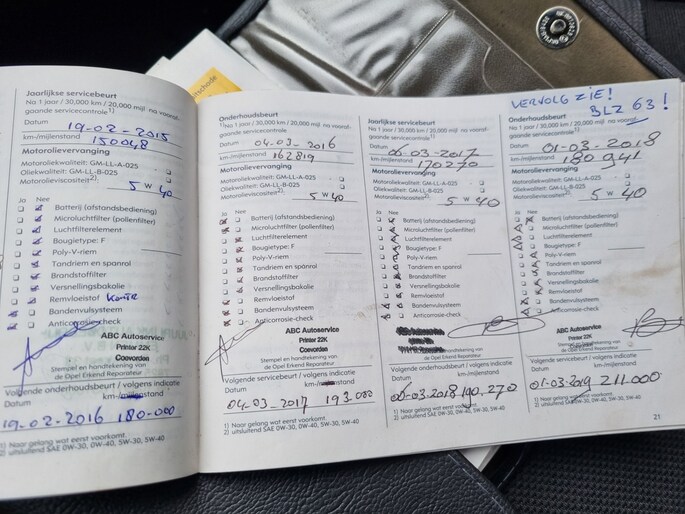 itschade
Jaarlijkse servicebeurt
Na 1 jaar / 30,000 km / 20,000 mijl na vooraf-
gaande servicecontrole1)
Datum
19-02-2015
km-/mijlenstand
150048
Motorolievervanging
Motoroliekwaliteit: GM-LL-A-025
Oliekwaliteit: GM-LL-B-025
Motorolieviscositeit2)
5 W 40
Ja Nee
Batterij (afstandsbediening)
Microluchtfilter (pollenfilter)
Luchtfilterelement
Bougietype: F
Poly-V-riem
Tandriem en spanrol
Brandstoffilter
Versnellingsbakolie
Remvloeistof
Bandenvulsysteem
Anticorrosie-check
ABC Autoservice
Printer 22K
Coevorden
Stempel en handtekening van
de Opel Erkend Reparateur
Volgende onderhoudsbeurt / volgens indicatie
Datum
19-02-2016 180-000
1) Naar gelang wat eerst voorkomt.
2) uitsluitend SAE 0W-30, 0W-40, 5W-30, 5W-40
Onderhoudsbeurt
Na 1 jaar / 30,000 km / 20,000 mijl na vooraf-
gaande servicecontrole1)
Datum
04-03-2016
km-/mijlenstand
162819
Motorolievervanging
Motoroliekwaliteit: GM-LL-A-025
Oliekwaliteit: GM-LL-B-025
Motorolieviscositeit2)
5 W 40
Ja Nee
Batterij (afstandsbediening)
Microluchtfilter (pollenfilter)
Luchtfilterelement
Bougietype: F
Poly-V-riem
Tandriem en spanrol
Brandstoffilter
Versnellingsbakolie
Remvloeistof
Bandenvulsysteem
Anticorrosie-check
ABC Autoservice
Printer 22K
Coevorden
Stempel en handtekening van
de Opel Erkend Reparateur
Volgende servicebeurt / volgens indicatie
Datum
04-03-2017 193.000
1) Naar gelang wat eerst voorkomt.
2) uitsluitend SAE 0W-30, 0W-40, 5W-30, 5W-40
Jaarlijkse servicebeurt
Na 1 jaar / 30,000 km / 20,000 mijl na vooraf-
gaande servicecontrole1)
Datum
06-03-2017
km-/mijlenstand
170270
Motorolievervanging
Motoroliekwaliteit: GM-LL-A-025
Oliekwaliteit: GM-LL-B-025
Motorolieviscositeit2)
5 W 40
Ja Nee
Batterij (afstandsbediening)
Microluchtfilter (pollenfilter)
Luchtfilterelement
Bougietype: F
Poly-V-riem
Tandriem en spanrol
Brandstoffilter
Versnellingsbakolie
Remvloeistof
Bandenvulsysteem
Anticorrosie-check
Stempel en handtekening van
de Opel Erkend Reparateur
Volgende onderhoudsbeurt / volgens indicatie
Datum km-/mijlenstand
06-03-2018 190.270
1) Naar gelang wat eerst voorkomt.
2) uitsluitend SAE 0W-30, 0W-40, 5W-30, 5W-40
VERVOLG ZIE!
BLZ 63!
Onderhoudsbeurt
Na 1 jaar / 30,000 km / 20,000 mijl na vooraf-
gaande servicecontrole1)
Datum
01-03-2018
km-/mijlenstand
180941
Motorolievervanging
Motoroliekwaliteit: GM-LL-A-025
Oliekwaliteit: GM-LL-B-025
Motorolieviscositeit2)
5 W 40
Ja Nee
Batterij (afstandsbediening)
Microluchtfilter (pollenfilter)
Luchtfilterelement
Bougietype: F
Poly-V-riem
Tandriem en spanrol
Brandstoffilter
Versnellingsbakolie
Remvloeistof
Bandenvulsysteem
Anticorrosie-check
ABC Autoservice
Printer 22K
Coevorden
Stempel en handtekening van
de Opel Erkend Reparateur
Volgende servicebeurt / volgens indicatie
Datum km-/mijlenstand
01-03-2019 211.000
1) Naar gelang wat eerst voorkomt.
2) uitsluitend SAE 0W-30, 0W-40, 5W-30, 5W-40
21